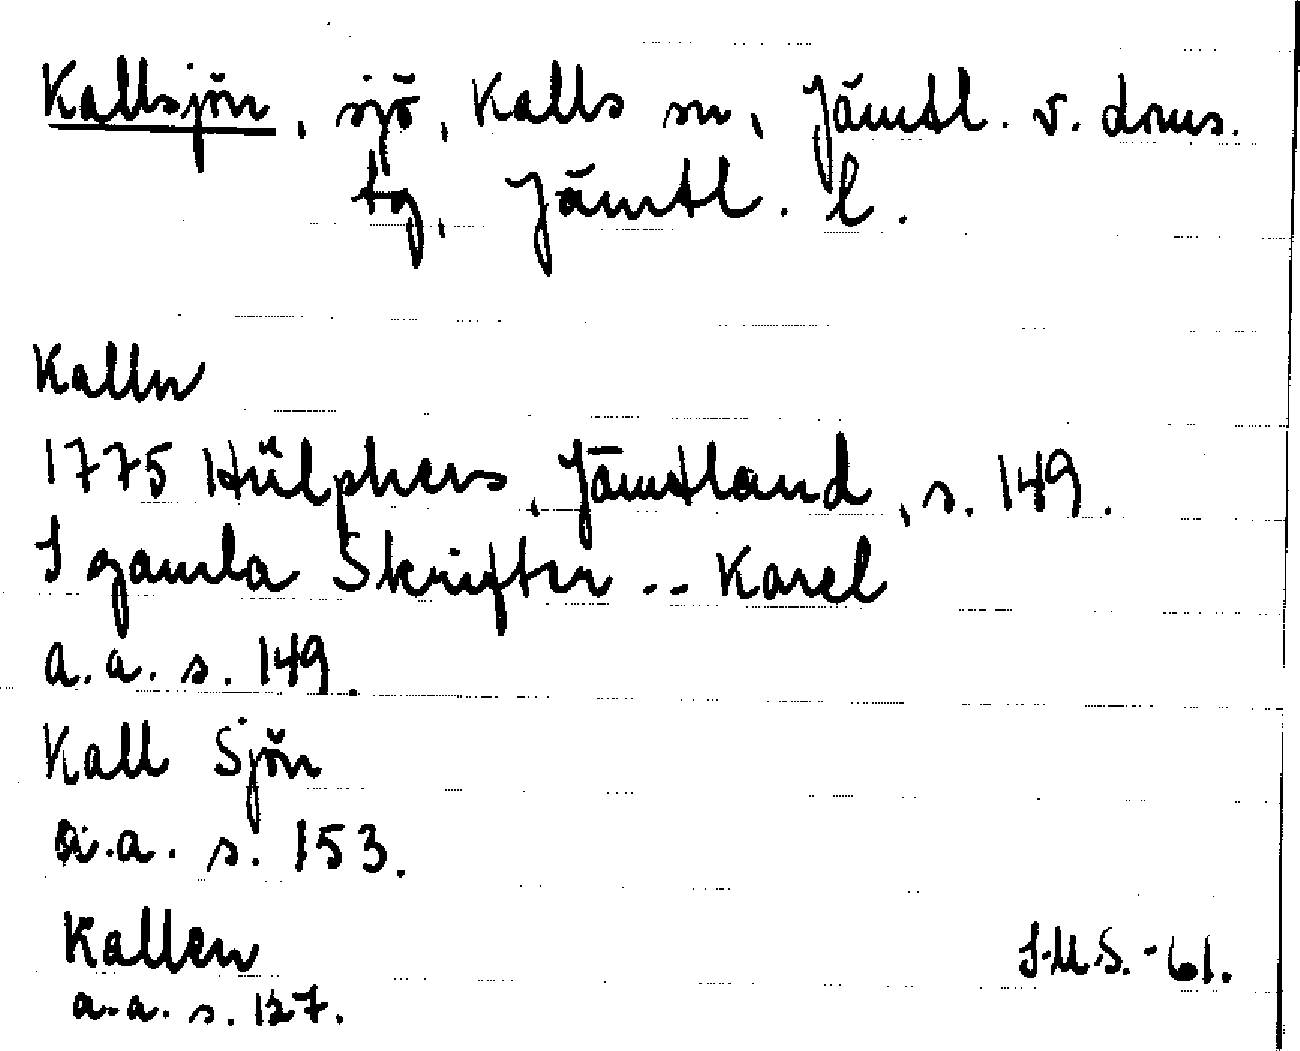 Kallsjön, sjö, Kalls sn, Jämtl. v. doms.
tg, Jämtl. l.
Kalln
1775 Hülphers, Jämtland, s. 149.
I gamla Skrifter -- Karel
a.a. s. 149.
Kall Sjön
a.a. s. 153.
Kallen
a.a. s. 127.
I.M.S. -61.